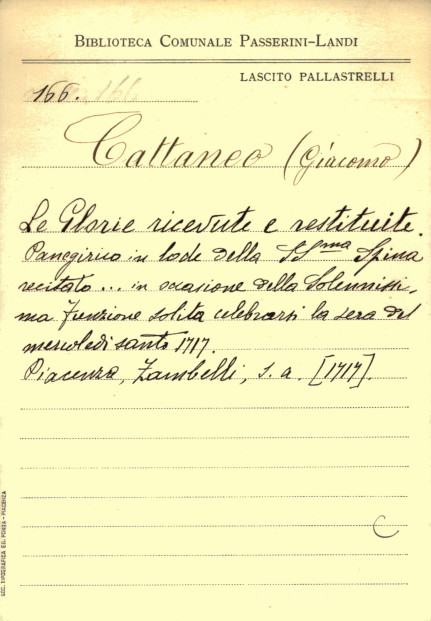 BIBLIOTECA COMUNALE PASSERINI-LANDI
LASCITO PALLASTRELLI
166.
Cattaneo (Giacomo)
Le Glorie ricevute e restituite.
Panegirico in lode della SSma Spina
recitato... in occasione della Solennissi-
ma Funzione solita celebrarsi la sera del
mercoledì santo 1717.
Piacenza, Zambelli, s. a. [1717].
C
SOC. TIPOGRAFICA ED. PORTA - PIACENZA